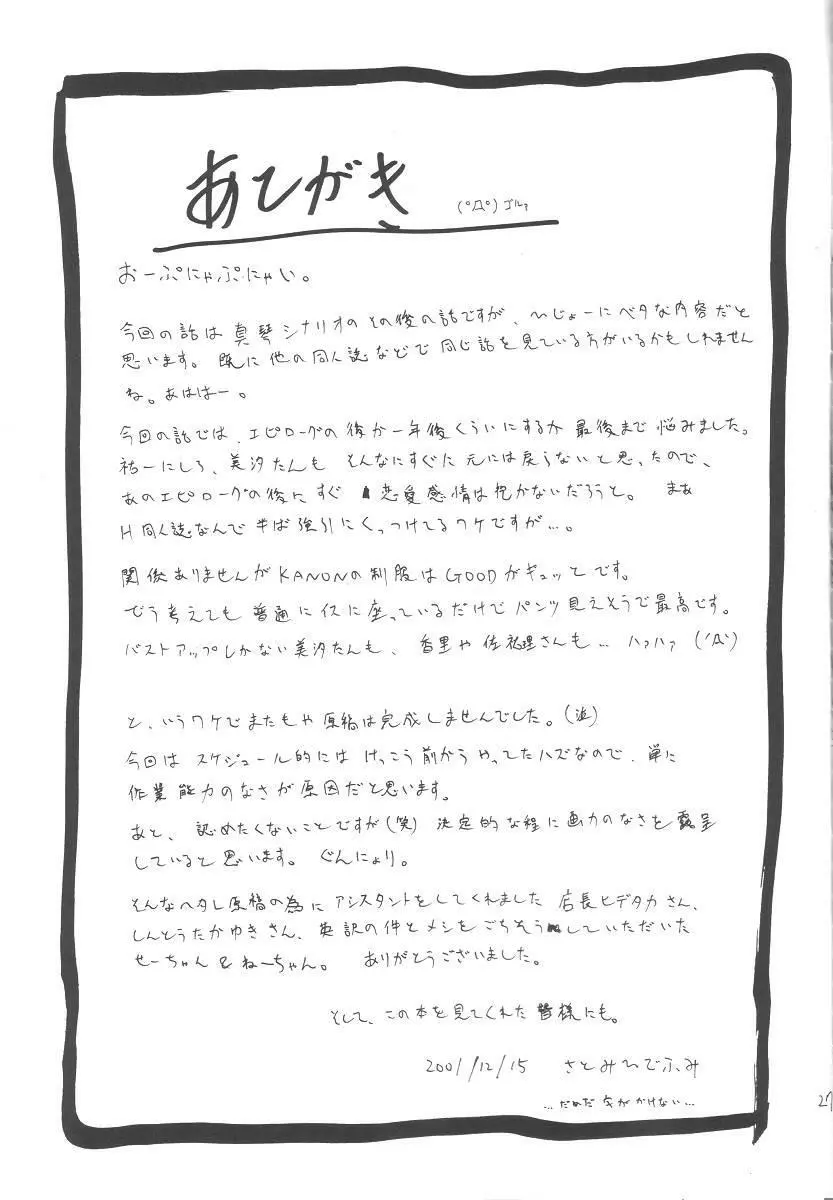 あとがき (ﾟДﾟ)ｺﾞﾙｧ
おーぷにゃぷにゃい。
今回の話は真琴シナリオのその後の話ですが、ひじょーにベタな内容だと
思います。既に他の同人誌などで同じ話を見ている方がいるかもしれません
ね。あははー。
今回の話では、エピローグの後か一年後くらいにするか最後まで悩みました。
祐一にしろ、美汐たんもそんなにすぐに元には戻らないと思ったので、
あのエピローグの後にすぐ恋愛感情は抱かないだろうと。まぁ
H同人誌なんで半ば強引にくっつけてるワケですが…。
関係ありませんがKANONの制服はGOODがギュッとです。
どう考えても普通にイスに座っているだけでパンツ見えそうで最高です。
バストアップしかない美汐たんも、香里や佐祐理さんも…ハァハァ(´Д`)
と、いうワケでまたもや原稿は完成しませんでした。(泣)
今回はスケジュール的にはけっこう前からやってたハズなので、単に
作業能力のなさが原因だと思います。
あと、認めたくないことですが(笑)決定的な程に画力のなさを露呈
していると思います。ぐんにょり。
そんなヘタレ原稿の為にアシスタントをしてくれました店長ヒデタカさん、
しんとうたかゆきさん、英訳の件とメシをごちそうしていただいた
せーちゃん&ねーちゃん。ありがとうございました。
そして、この本を見てくれた皆様にも。
2001/12/15 さとみひでふみ
…だめだ 字が かけない…
27